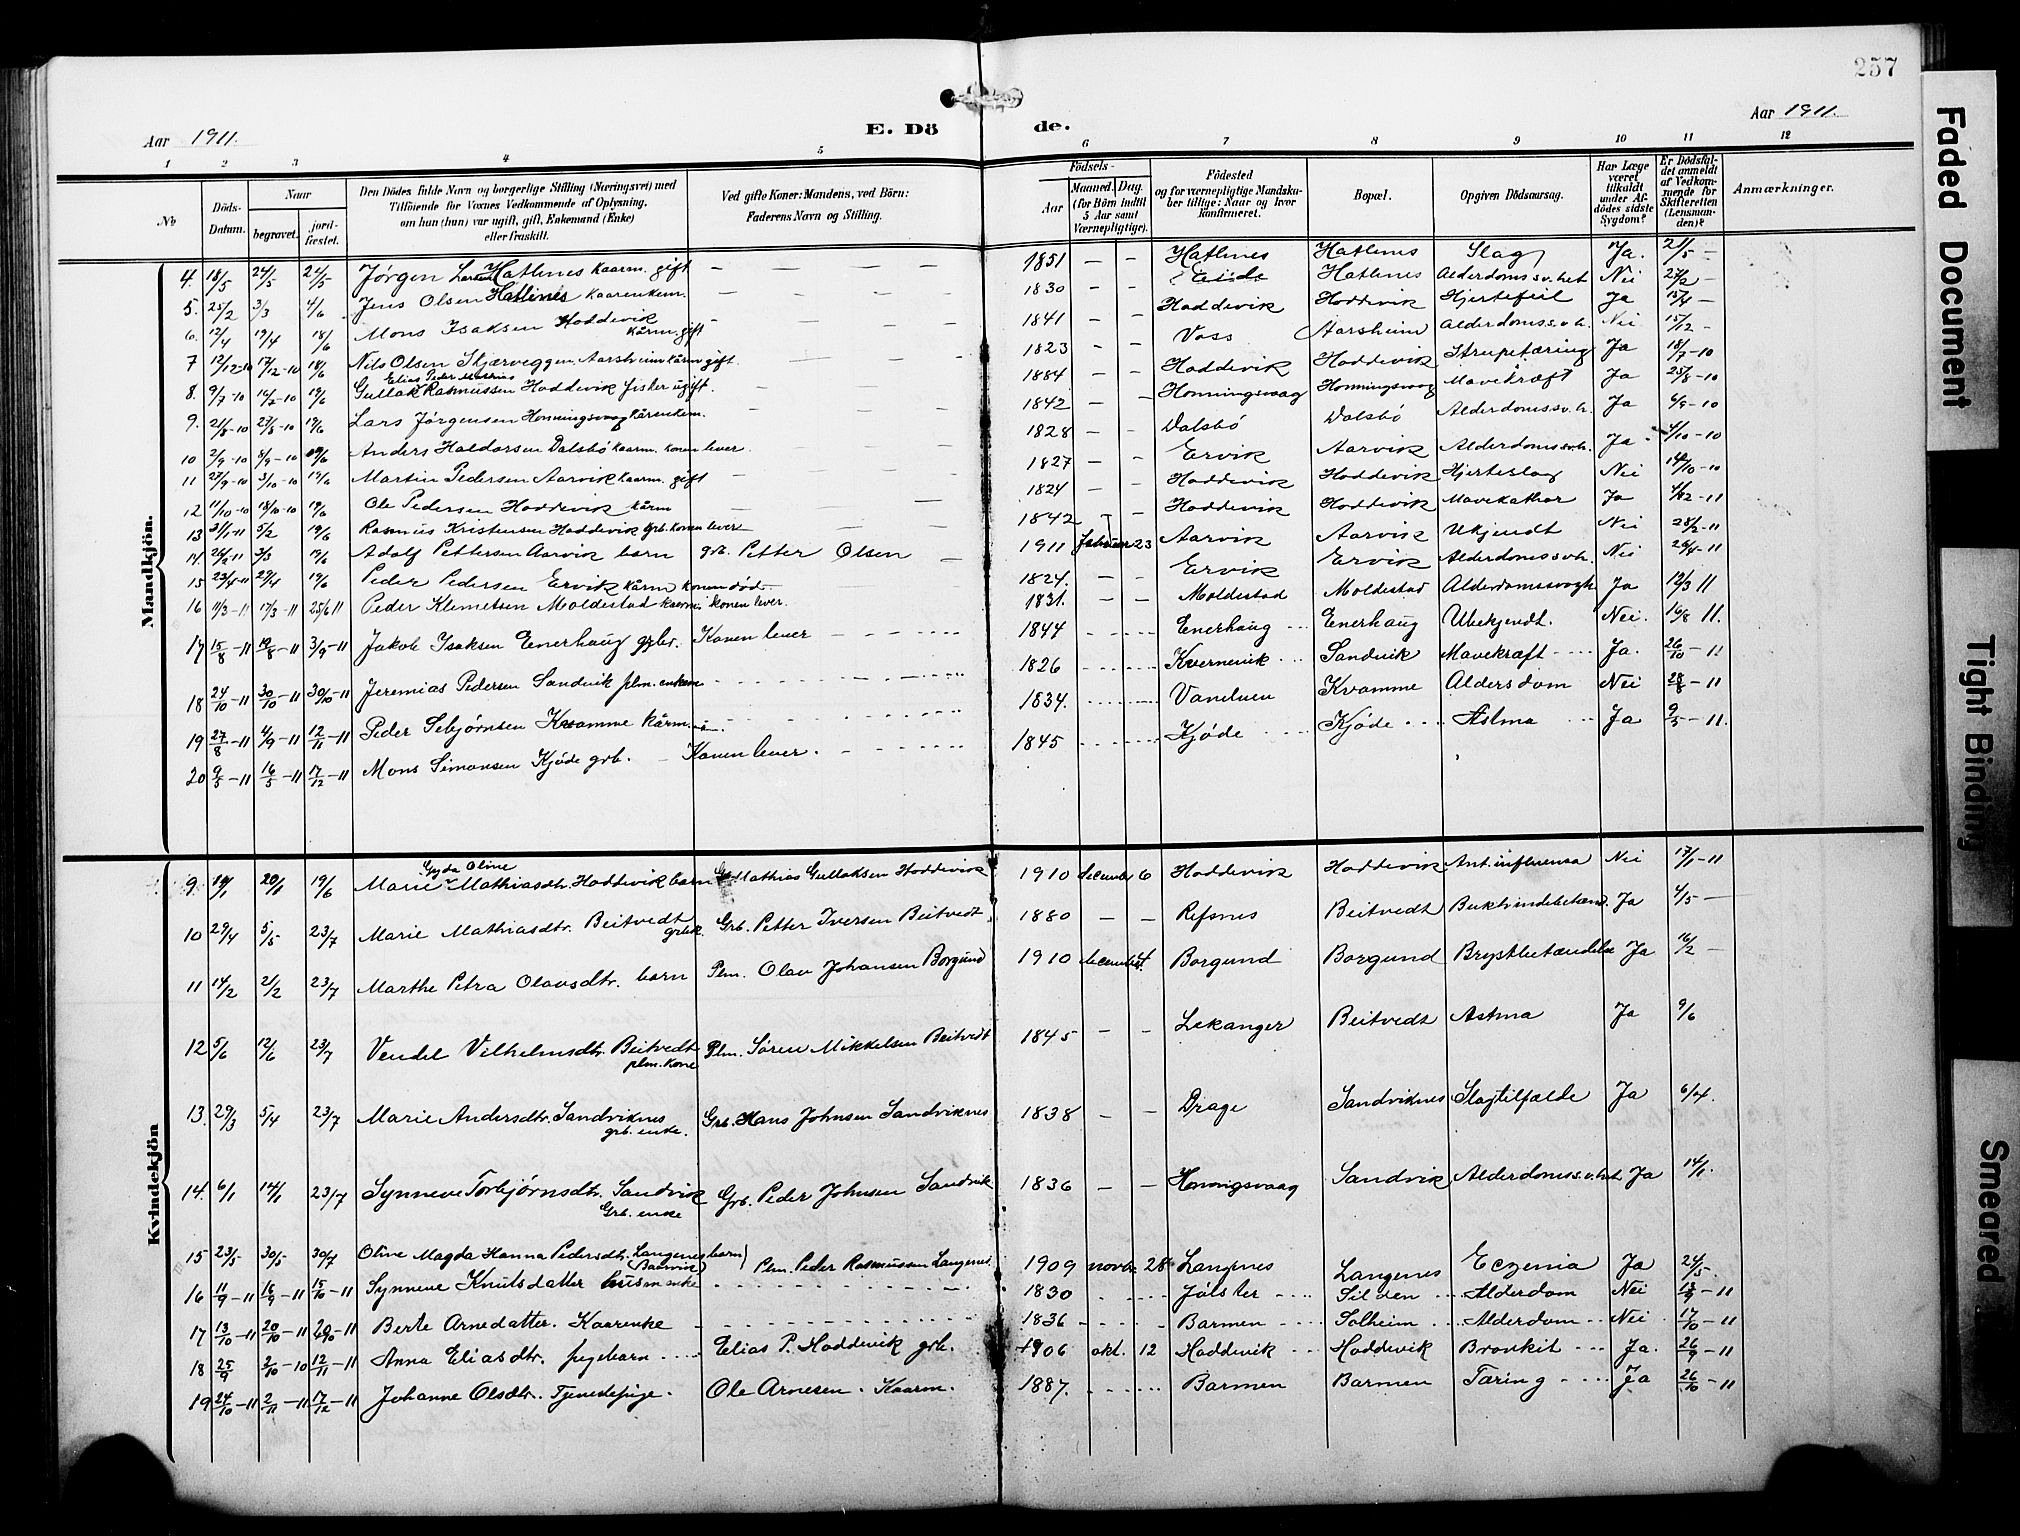 257
Aar 1911.
E. Dö de.
Aar 1911.
1 2 3 4 5 6 7 8 9 10 11 12
No
Döds-Datum.
Naar
begravet.
jord-fæstet.
Den Dödes fulde Navn og borgerlige Stilling (Næringsvei) med
Tilföiende for Voxnes Vedkommende af Oplysning,
om hun (hun) var ugift, gift, Enkemand (Enke)
eller fraskilt.
Ved gifte Koner: Mandens, ved Börn:
Faderens Navn og Stilling.
Födsels-
Aar
Maaned. Dag.
(for Börn indtil
5 Aar samt
Værnepligtige).
Födested
og for værnepligtige Mandska-
ber tillige: Naar og hvor
konfirmeret.
Bopæl.
Opgiven Dödsaarsag.
Har Læge
været
tilkaldt
under Af-
dödes sidste
Sygdom?
Er Dödsfal-
det anmeldt
af Vedkom-
mende for
Skifteretten
(Lensman-
den)?
Anmærkninger.
Mandkjön.
4. 18/5 24/5 24/5 Jørgen Larsen Hatlenes kaarm. gift – – – – 1851 – – Hatlenes Hatlenes Slag Ja. 21/5 –
5. 25/2 3/3 4/6 Jens Olsen Hatlenes kaarenkem. – – – – 1830 – – Eiide Hatlenes Alderdomssv.het Nei 27/2 –
6. 12/4 19/4 18/6 Mons Isaksen Hoddevik kårm. gift – – – – 1841 – – Hoddevik Hoddevik Hjertefeil Ja 15/4 –
7 12/12-10 17/12-10 18/6 Nils Olsen Skjærveggen Aarsheim kårm gift. – – – – 1823 – – Voss Aarsheim Alderdomssv.h. Nei 15/12 –
8. 9/7-10 14/7-10 19/6 Gullak Elias Peder Mathias Rasmussen Hoddevik fisker ugift. – – – 1884 – – Hoddevik Hoddevik Strupetæring Ja 18/7-10
9. 21/8-10 27/8-10 19/6 Lars Jørgensen Honningsvaag kårenkem. – – – 1842 – – Honningsvaag Honningsvaag Mavekræft Ja 25/8-10
10 2/9-10 8/9-10 19/6 Anders Haldorsen Dalsbø kaarm. konen lever. – – – 1828 – – Dalsbö Dalsbö Alderdomssv.h. Ja 6/9-10
11 27/9-10 3/10-10 19/6 Martin Pedersen Aarvik kaarm. gift – – – 1827 – – Ervik Aarvik Alderdomssv.h. Ja 4/10-10
12 11/10-10 18/10-10 19/6 Ole Pedersen Hoddevik kårm – – 1824 – – Hoddevik Hoddevik Hjerteslag Nei 14/10-10
13 31/1-11 5/2 19/6 Rasmus Kristensen Hoddevik Grb. konen lever – – 1842 – – Hoddevik Hoddevik Mavekathar Ja 4/2-11
14. 26/2-11 3/3 19/6 Adolf Pettersen Aarvik barn grb. Petter Olsen – 1911 Februar 23 Aarvik Aarvik Ukjendt Nei 28/2-11
15 23/4-11 29/4 19/6 Peder Pedersen Ervik kårm konen død – 1824. – – Ervik Ervik Alderdomssv.h. Nei 26/4-11
16 11/3-11 17/3-11 25/6 11 Peder Klemetsen Moldestad kaarm. konen lever. 1831. – – Moldestad Moldestad Alderdomssvagh Ja 12/3 11
17 15/8-11 19/8-11 3/9-11 Jakob Isaksen Enerhaug grbr. Konen lever 1844 Enerhaug Enerhaug Ubekjendt. Nei. 16/8 11.
18 24/10-11 30/10-11 30/10-11 Jeremias Pedersen Sandvik plm. enkem 1826 Kvernevik Sandvik Mavekraft Ja. 26/10-11
19 27/8-11 4/9-11 12/11-11 Peder Sebjørnsen Kvamme kårm. 1834. Vanelven Kvamme Aldersdom Nei 28/8-11
20 9/5-11 16/5-11 17/12-11 Mons Simonsen Kjøde grb. – Konen lever. 1845 Kjøde Kjøde Astma Ja 9/5-11.
Kvindekjön
9. 14/1 20/1 19/6 Gyda Oline Marie Mathiasdtr. Hoddevik barn Mathias Gullaksen Hoddevik 1910 december 6 Hoddevik Hoddevik Ant. influensa Nei 17/1-11
10 29/4 5/5 23/7 Marie Mathiasdtr. Beitvedt grbk. Grb. Petter Iversen Beitvedt 1880 – – Refsnes Beitvedt Bukhindebetænd. Ja 4/5 –
11 14/2 2/2 23/7 Marthe Petra Olavsdtr. barn Plm. Olav Johansen Borgund 1910 december Borgund Borgund Brystbetændelse Ja 16/2 –
12 5/6 12/6 23/7 Vendel Vilhelmsdtr. Beitvedt plm. kone Plm. Søren Mikkelsen Beitvedt 1845 – – Lekanger Beitvedt Astma Ja 9/6
13. 29/3 5/4 23/7 Marie Andersdtr. Sandviknes grb. enke. Grb. Hans Johnsen Sandviknes 1838 – – Drage Sandviknes Slagtilfælde Ja 6/4.
14. 6/1 14/1 23/7 Synneve Torbjørnsdtr. Sandvik Grb. enke Grb. Peder Johnsen Sandvik 1836 – – Honningsvaag Sandvik Alderdomssv.het Ja 14/1.
15 23/5 30/5 30/7 Oline Magda Hanna Pedersdtr. Langenes barn Plm. Peder Rasmussen Langenes 1909 novbr 28 Langenes Langenes Eczema Ja 24/5.
16 11/9-11 16/9-11 15/10-11 Synneve Knutsdatter husm enke 1830 Jølster Silden Alderdom Nei 13/9-11
17 13/10-11 20/10-11 20/10-11 Berte Arnedatter. Kaarenke 1836 Barmen Solheim Alderdom Nei 17/10-11
18 25/9 2/10-10 12/11-11 Anna Eliasdtr. pigebarn Elias P. Hoddevik grb. 1906 okt. 12 Hoddevik Hoddevik Bronkit Ja. 26/9-11
19 24/10-11 2/11-11 17/12-11 Johanne Olsdtr. Tjenestepige. Ole Arnesen. Kaarm. 1887. Barmen Barmen Tæring Ja 26/10-11
Faded Document
Tight Binding
Smeared